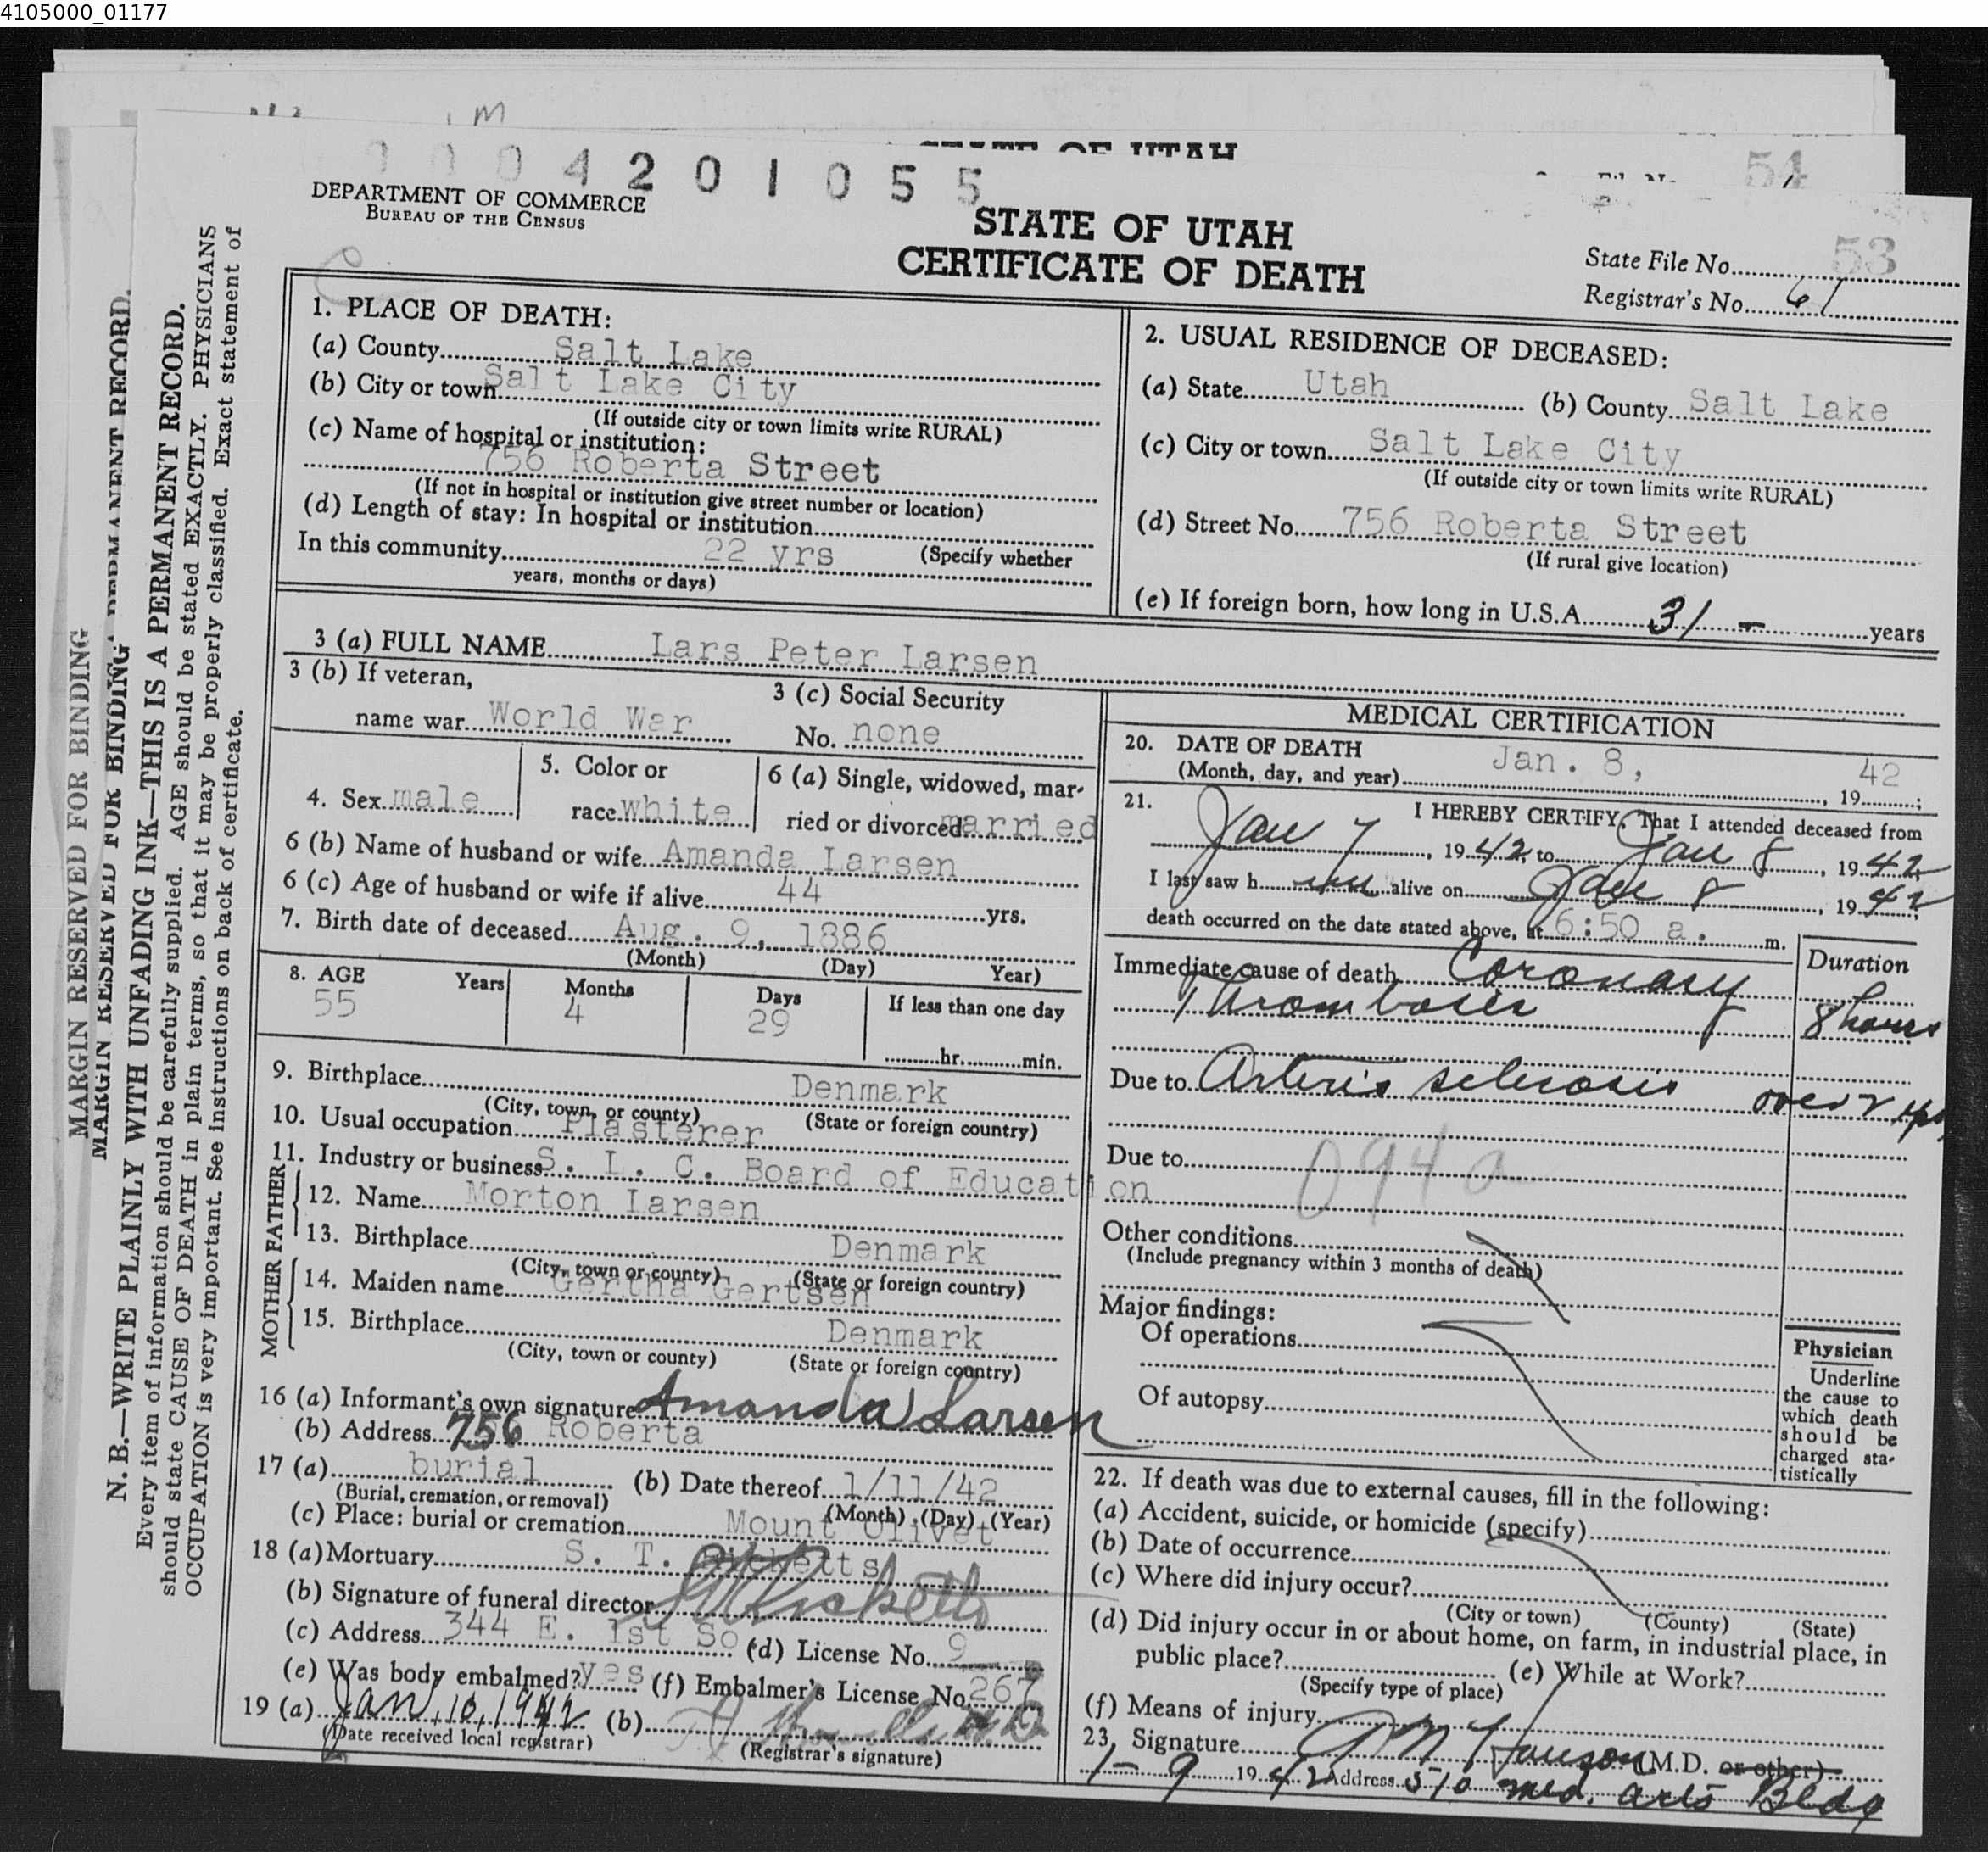 4105000_01177
M
STATE OF UTAH
54
0 0 0 4 2 0 1 0 5 5
DEPARTMENT OF COMMERCE
BUREAU OF THE CENSUS
STATE OF UTAH
CERTIFICATE OF DEATH
State File No. 53
Registrar's No. 61
MARGIN RESERVED FOR BINDING
MARGIN RESERVED FOR BINDING PERMANENT RECORD.
N. B.—WRITE PLAINLY WITH UNFADING INK—THIS IS A PERMANENT RECORD.
Every item of information should be carefully supplied. AGE should be stated EXACTLY. PHYSICIANS
should state CAUSE OF DEATH in plain terms, so that it may be properly classified. Exact statement of
OCCUPATION is very important. See instructions on back of certificate.
1. PLACE OF DEATH:
(a) County Salt Lake
(b) City or town Salt Lake City
(If outside city or town limits write RURAL)
(c) Name of hospital or institution:
756 Roberta Street
(If not in hospital or institution give street number or location)
(d) Length of stay: In hospital or institution
In this community 22 yrs (Specify whether
years, months or days)
2. USUAL RESIDENCE OF DECEASED:
(a) State Utah (b) County Salt Lake
(c) City or town Salt Lake City
(If outside city or town limits write RURAL)
(d) Street No. 756 Roberta Street
(If rural give location)
(e) If foreign born, how long in U.S.A. 31 - years
3 (a) FULL NAME Lars Peter Larsen
3 (b) If veteran,
name war World War
3 (c) Social Security
No. none
4. Sex male
5. Color or
race white
6 (a) Single, widowed, mar-
ried or divorced married
6 (b) Name of husband or wife Amanda Larsen
6 (c) Age of husband or wife if alive 44 yrs.
7. Birth date of deceased Aug. 9, 1886
(Month) (Day) Year)
8. AGE Years Months Days If less than one day
55 4 29
hr. min.
9. Birthplace Denmark
(City, town, or county) (State or foreign country)
10. Usual occupation Plasterer
11. Industry or business S. L. C. Board of Education
FATHER
12. Name Morton Larsen
13. Birthplace Denmark
(City, town or county) (State or foreign country)
MOTHER
14. Maiden name Gertha Gertsen
15. Birthplace Denmark
(City, town or county) (State or foreign country)
16 (a) Informant's own signature Amanda Larsen
(b) Address 756 Roberta
17 (a) burial (b) Date thereof 1/11/42
(Burial, cremation, or removal) (Month) (Day) (Year)
(c) Place: burial or cremation Mount Olivet
18 (a) Mortuary S. T. Ricketts
(b) Signature of funeral director Ricketts
(c) Address 344 E. 1st So (d) License No. 9
(e) Was body embalmed? yes (f) Embalmer's License No. 267
19 (a) Jan. 10, 1942 (b) M.D.
(Date received local registrar) (Registrar's signature)
MEDICAL CERTIFICATION
20. DATE OF DEATH
(Month, day, and year) Jan. 8, 1942;
21. I HEREBY CERTIFY, That I attended deceased from
Jan 7, 1942, to Jan 8, 1942
I last saw him alive on Jan 8, 1942;
death occurred on the date stated above, at 6:50 a. m.
Immediate cause of death Coronary
Thrombosis
Duration
8 hours
Due to Arterio sclerosis over 2 yrs
Due to
094a
Other conditions
(Include pregnancy within 3 months of death)
Major findings:
Of operations
Of autopsy
Physician
Underline
the cause to
which death
should be
charged sta-
tistically
22. If death was due to external causes, fill in the following:
(a) Accident, suicide, or homicide (specify)
(b) Date of occurrence
(c) Where did injury occur?
(City or town) (County) (State)
(d) Did injury occur in or about home, on farm, in industrial place, in
public place? (e) While at Work?
(Specify type of place)
(f) Means of injury
23. Signature Hanson (M.D. or other)
1-9 1942 Address 510 Med. Arts Bldg